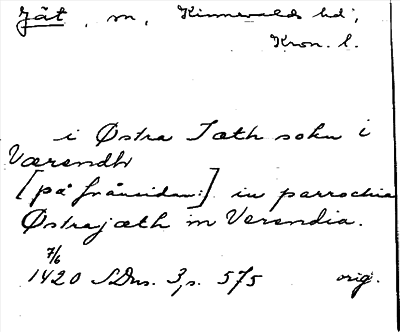 Jät, m, Kinnevalds hd;
Kron. l.
i Østra Jæth sokn i
Værendh
[på frånsidan:] in parrochia
Østrajæth in Verendia.
7/6
1420 SDns. 3, s. 575 orig.